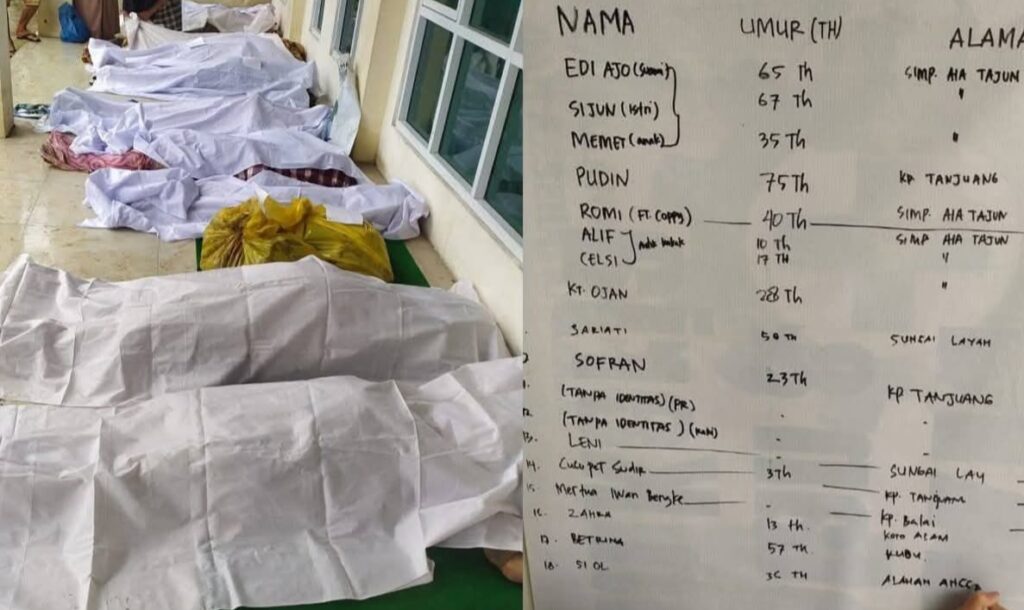 NAMA UMUR (TH) ALAMA
EDI AJO (Suami) 65 Th SIMP. AIA TAJUN
SIJUN (Istri) 67 Th "
MEMET (anak) 35 Th "
PUDIN 75 Th KP TANJUANG
ROMI (FT. Coppy) 40 Th SIMP. AIA TAJUN
ALIF 10 Th SIMP AIA TAJUN
CELSI 17 TH "
KT. OJAN 28 Th "
SARIATI 50 TH SUNGAI LAYAH
SOFRAN 23 Th KP TANJUANG
(TANPA IDENTITAS) (PR) - -
12. (TANPA IDENTITAS) - -
13. LENI - SUNGAI LAY
14. Cucu pet Sudir 3 Th KP. TANJUANG
15. Mertua Iwan Bengke - KP. Balai
16. ZAHRA 13 th. KOTO ALAM
17. BETRINA 57 Th. KUBU.
18. SI OL 36 TH ALAHAN